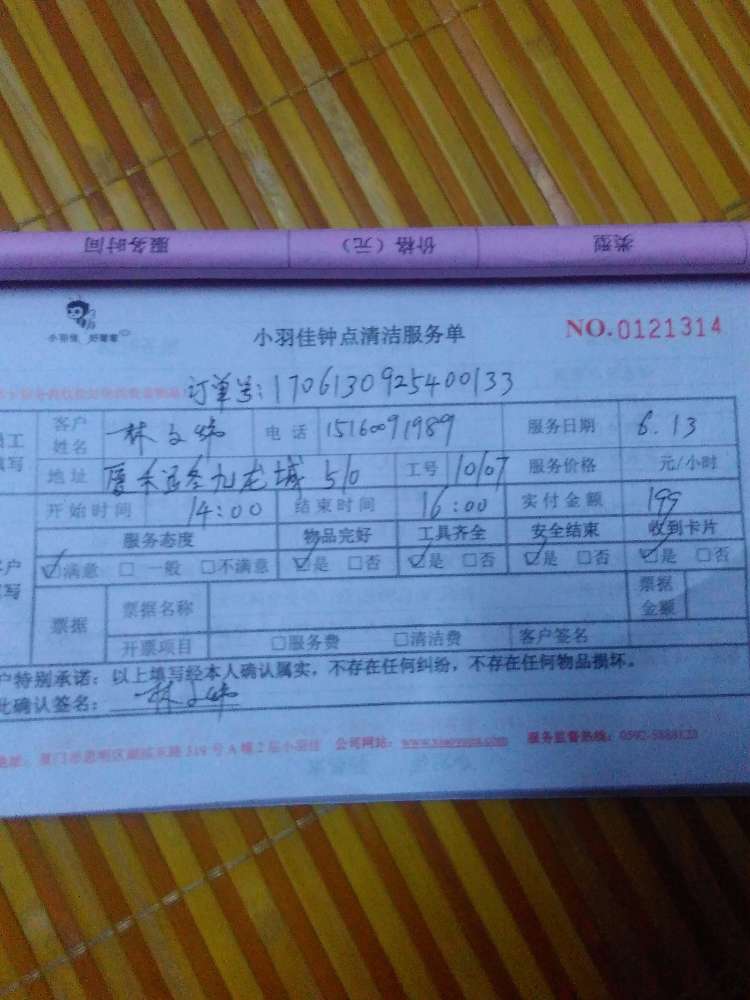 服务时间 价格（元） 类型
小羽佳 好管家
小羽佳钟点清洁服务单 NO.0121314
订单号：1706130925400133
客户姓名 林 电话 15160091989 服务日期 6.13
地址 九龙城 510 工号 10107 服务价格 元/小时
开始时间 14:00 结束时间 16:00 实付金额 199
服务态度 物品完好 工具齐全 安全结束 收到卡片
☑满意 □一般 □不满意 ☑是 □否 ☑是 □否 ☑是 □否 ☑是 □否
票据 票据名称 票据金额
开票项目 □服务费 □清洁费 客户签名
户特别承诺：以上填写经本人确认属实，不存在任何纠纷，不存在任何物品损坏。
此确认签名： 林
厦门市思明区湖滨东路319号A幢2层小羽佳 公司网站： 服务监督热线：